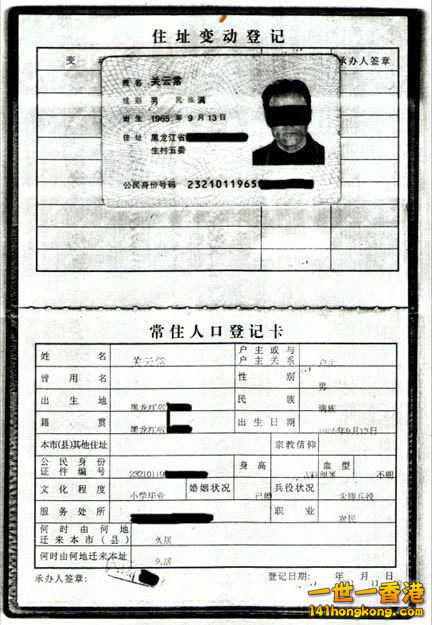 住址变动登记
变
承办人签章
姓名 关云常
性别 男 民族 满
出生 1965 年 9 月 13 日
住址 黑龙江省
生村五委
公民身份号码 2321011965
常住人口登记卡
姓名 户主或与户主关系 户主
曾用名 性别 男
出生地 黑龙江省 民族 满族
籍贯 黑龙江省 出生日期 年9月13日
本市(县)其他住址 宗教信仰
公民身份证件编号 23210119 身高 血型 不明
文化程度 小学毕业 婚姻状况 已婚 兵役状况
服务处所 职业 农民
何时由何地迁来本市(县) 久居
何时由何地迁来本址 久居
承办人签章: 登记日期: 年 月 日
一世一香港
141hongkong.com